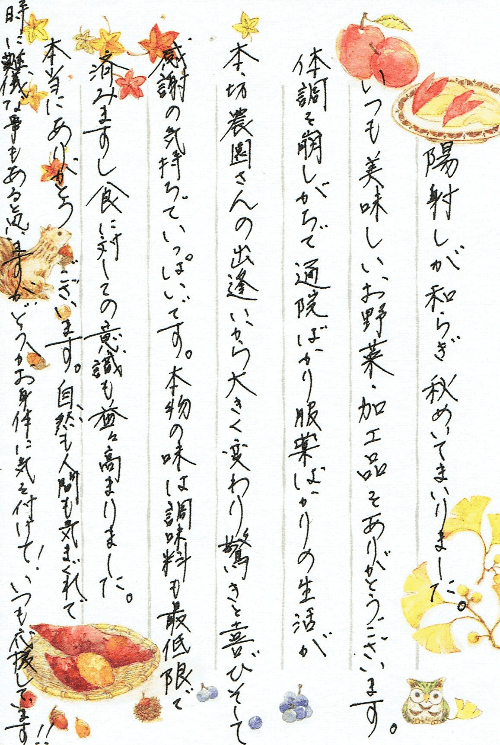 陽射しが和らぎ秋めいてまいりました。
いつも美味しいお野菜・加工品をありがとうございます。
体調を崩しがちで通院ばかり服薬ばかりの生活が
本坊農園さんの出逢いから大きく変わり驚きと喜びそして
感謝の気持ちでいっぱいです。本物の味は調味料も最低限で
済みますし食に対しての意識も益々高まりました。
本当にありがとうございます。自然も人間も気まぐれで
時に難儀な事もある思いますがどうかお身体に気を付けて、いつも応援しています!!